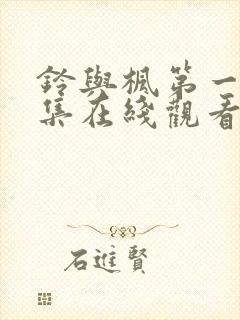 鈴與楓第一
集在綫觀看
石進賢